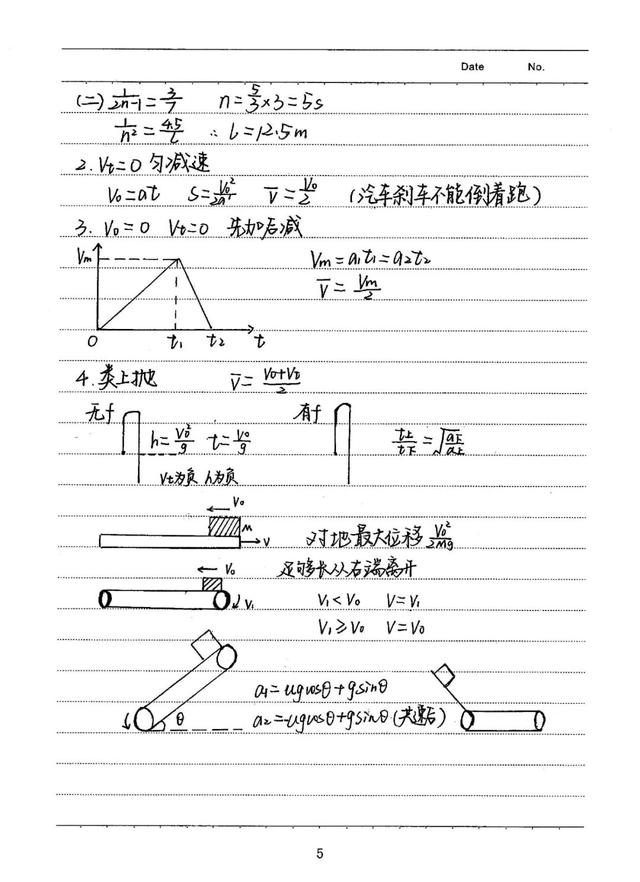 Date No.
(二) 1/(2n-1) = 3/7 n = 5/3×3 = 5s
1/n² = 4.5/L ∴ L = 12.5m
2. Vt=0 匀减速
V₀=at S=V₀²/2a V̄=V₀/2 (汽车刹车不能倒着跑)
3. V₀=0 Vt=0 先加后减
Vm
Vm=a₁t₁=a₂t₂
V̄=Vm/2
0 t₁ t₂ t
4. 类上抛 V̄=(V₀+Vt)/2
无f 有f
h=V₀²/g t=V₀/g t上/t下=√(a下/a上)
Vt为负 h为负
V₀
M V 对地最大位移 V₀²/2Mg
V₀ 足够长从右端离开
V₁ V₁<V₀ V=V₁
V₁≥V₀ V=V₀
a₁=ugcosθ+gsinθ
θ a₂=-ugcosθ+gsinθ(共速后)
5